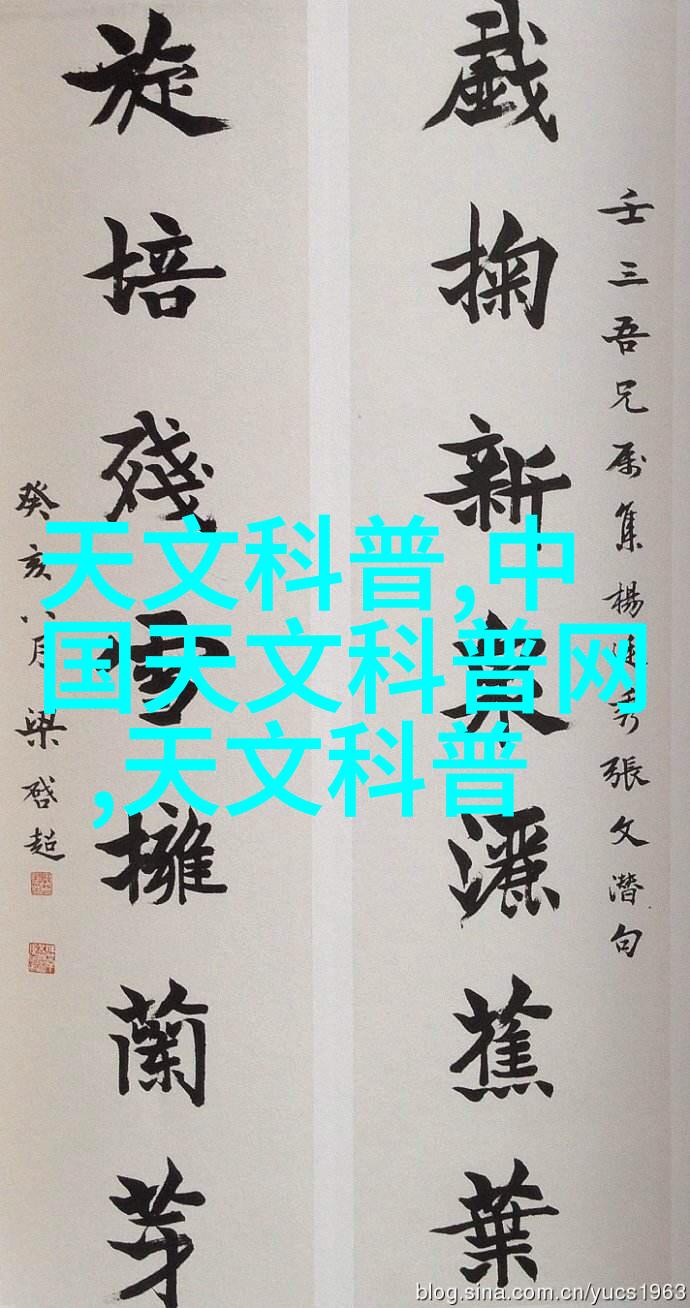 壬三吾兄属集楊廷秀張文潛句
戱掬新泉灑蕉葉
旋培殘雪擁蘭芽
癸亥八月梁啓超
天文科普,中
国天文科普网
,天文科普
blog.sina.com.cn/yucs1963